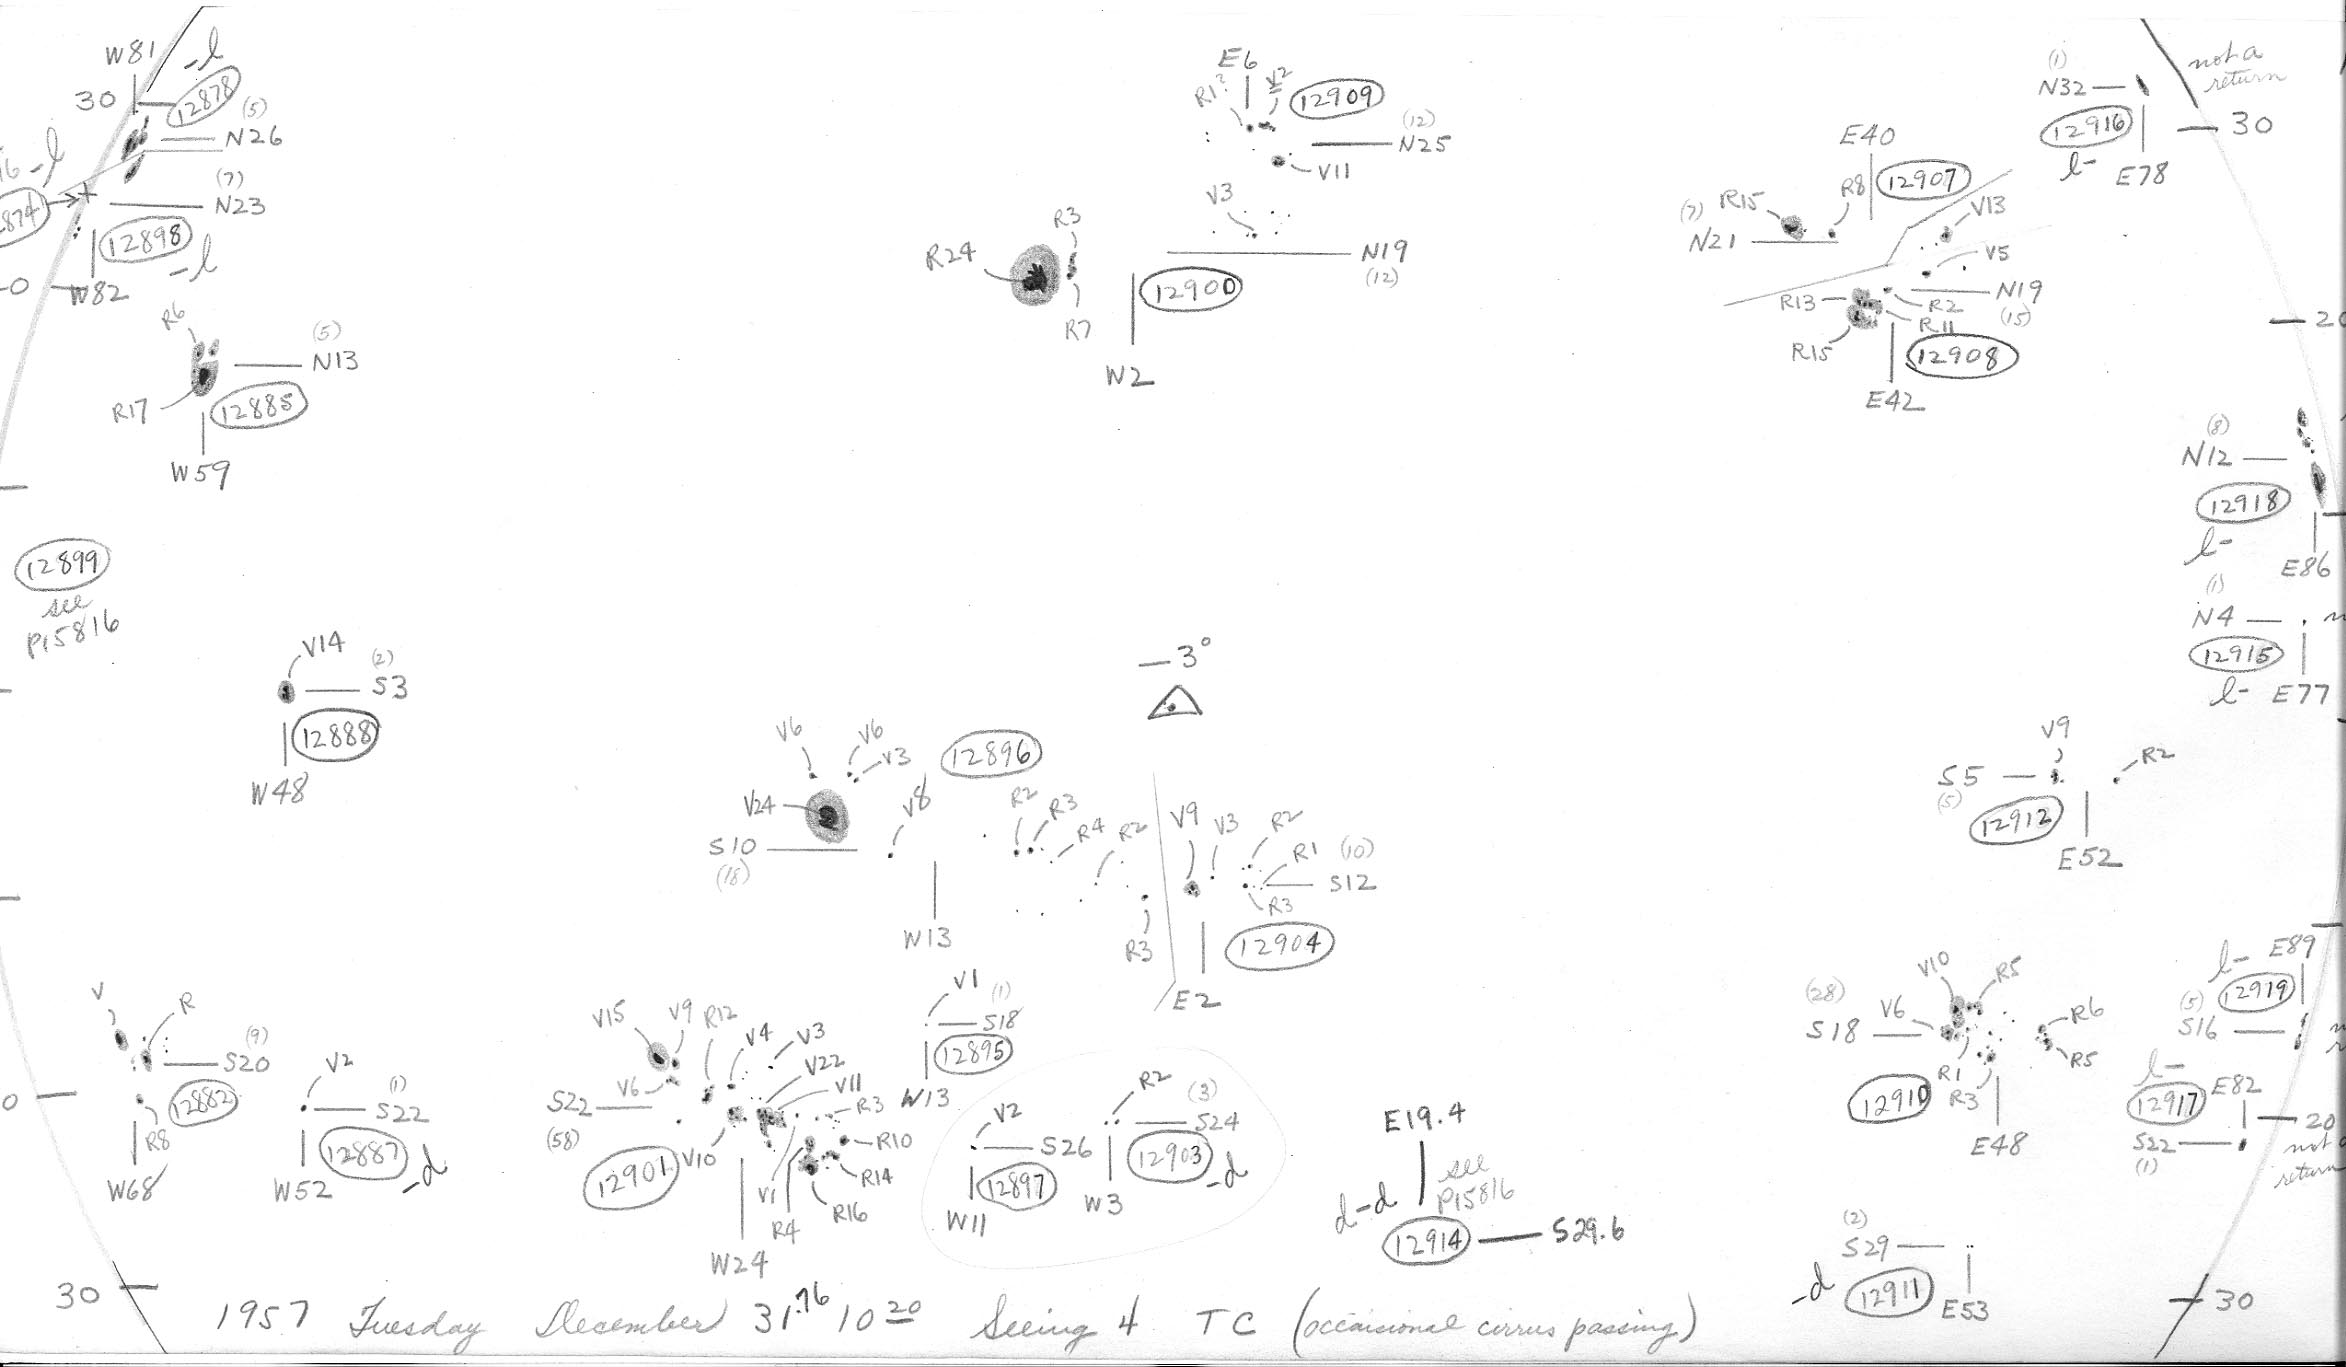 W81
-l
30
12878
(5)
N26
-l
874
(7)
N23
12898
-l
W82
R6
(5)
N13
R17
12885
W59
12899
see
P15816
V14
(2)
S3
12888
W48
E6
R1?
V2
12909
(12)
N25
V11
V3
R3
R24
N19
(12)
12900
R7
W2
(1)
N32
not a
return
12916
30
l-
E78
E40
12907
R8
R15
(7)
N21
V13
V5
N19
(15)
R13
R2
R11
R15
12908
E42
20
(8)
N12
12918
l-
E86
(1)
N4
12915
l-
E77
-3°
V6
V6
V3
12896
V24
V8
R2
R3
R4
R2
S10
(18)
W13
R3
V9
V3
R2
R1
(10)
S12
R3
12904
E2
V9
R2
S5
(5)
12912
E52
V
R
(9)
S20
12882
R8
W68
V2
(1)
S22
12887
-d
W52
V15
V9
R12
V4
V3
V22
V11
V6
S22
(58)
R3
V10
12901
R10
R14
V1
R4
R16
W24
V1
(1)
S18
12895
W13
V2
S26
12897
W11
R2
(3)
S24
12903
-d
W3
E19.4
see
P15816
d-d
12914
S29.6
(28)
V10
R5
V6
S18
R6
R5
R1
R3
12910
E48
l-
E89
12919
(5)
S16
l-
E82
12917
S22
(1)
20
return
(2)
S29
-d
12911
E53
30
30
1957 Tuesday December 31.76 10 20 Seeing 4 TC (occaisional cirrus passing)